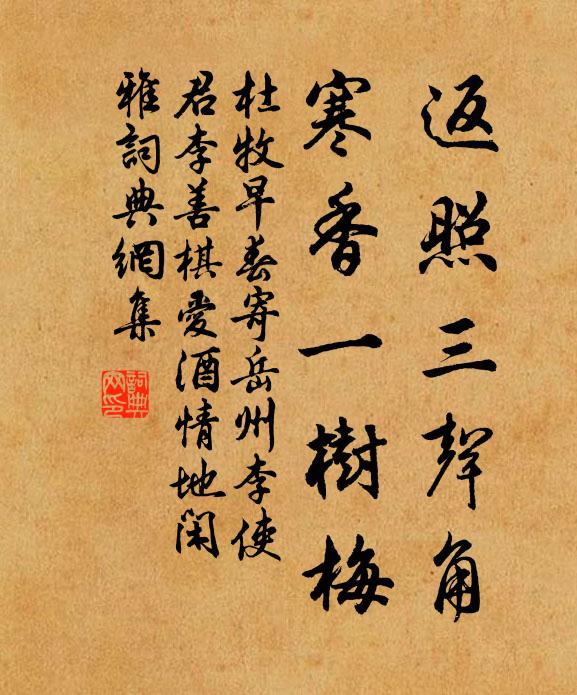 返照三聲角
寒香一樹梅
杜牧早春寄岳州李使
君李善棋愛酒情地閑
雅詞典網集
詞典
网印